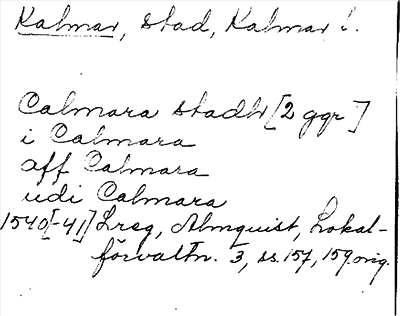 Kalmar, stad, Kalmar l.
Calmara stadh [2 ggr]
i Calmara
aff Calmara
udi Calmara
1540[-41] Lreg, Almquist, Lokal-
förvaltn. 3, ss. 157, 159. orig.